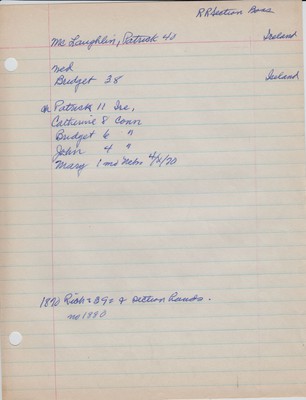 RR Section Boss
Mc Laughlin, Patrick 40 Ireland
wed
Budget 38 Ireland
ch Patrick 11 Ire,
Catherine 8 Conn
Budget 6 "
John 4 "
Mary 1 mo Nebr 4/5/70
1870 Rich + 3 section hands.
no 1880